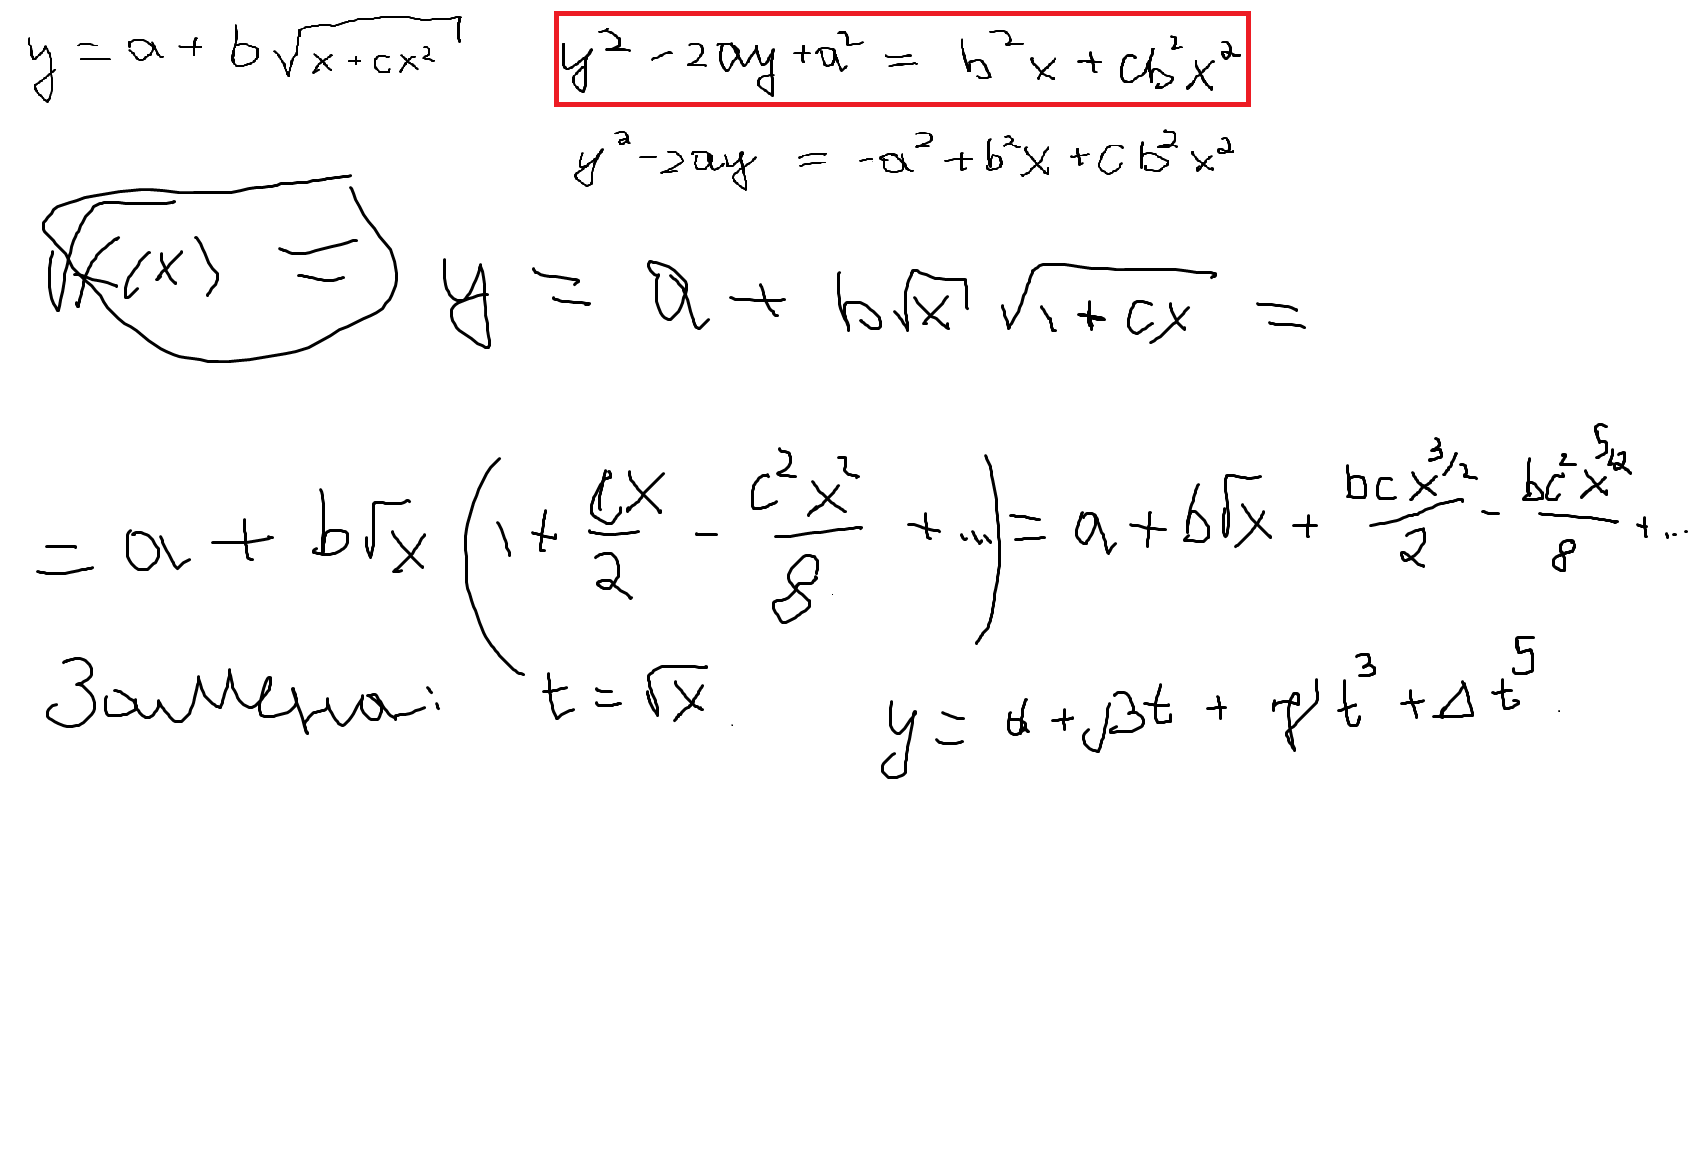 y = a + b√(x + cx²)
y² - 2ay + a² = b²x + cb²x²
y² - 2ay = -a² + b²x + cb²x²
√(x) = y = a + b√x √(1 + cx) =
= a + b√x (1 + cx/2 - c²x²/8 + ...) = a + b√x + bcx^(3/2)/2 - bc²x^(5/2)/8 + ...
Замена: t = √x y = α + βt + γt³ + Δt⁵